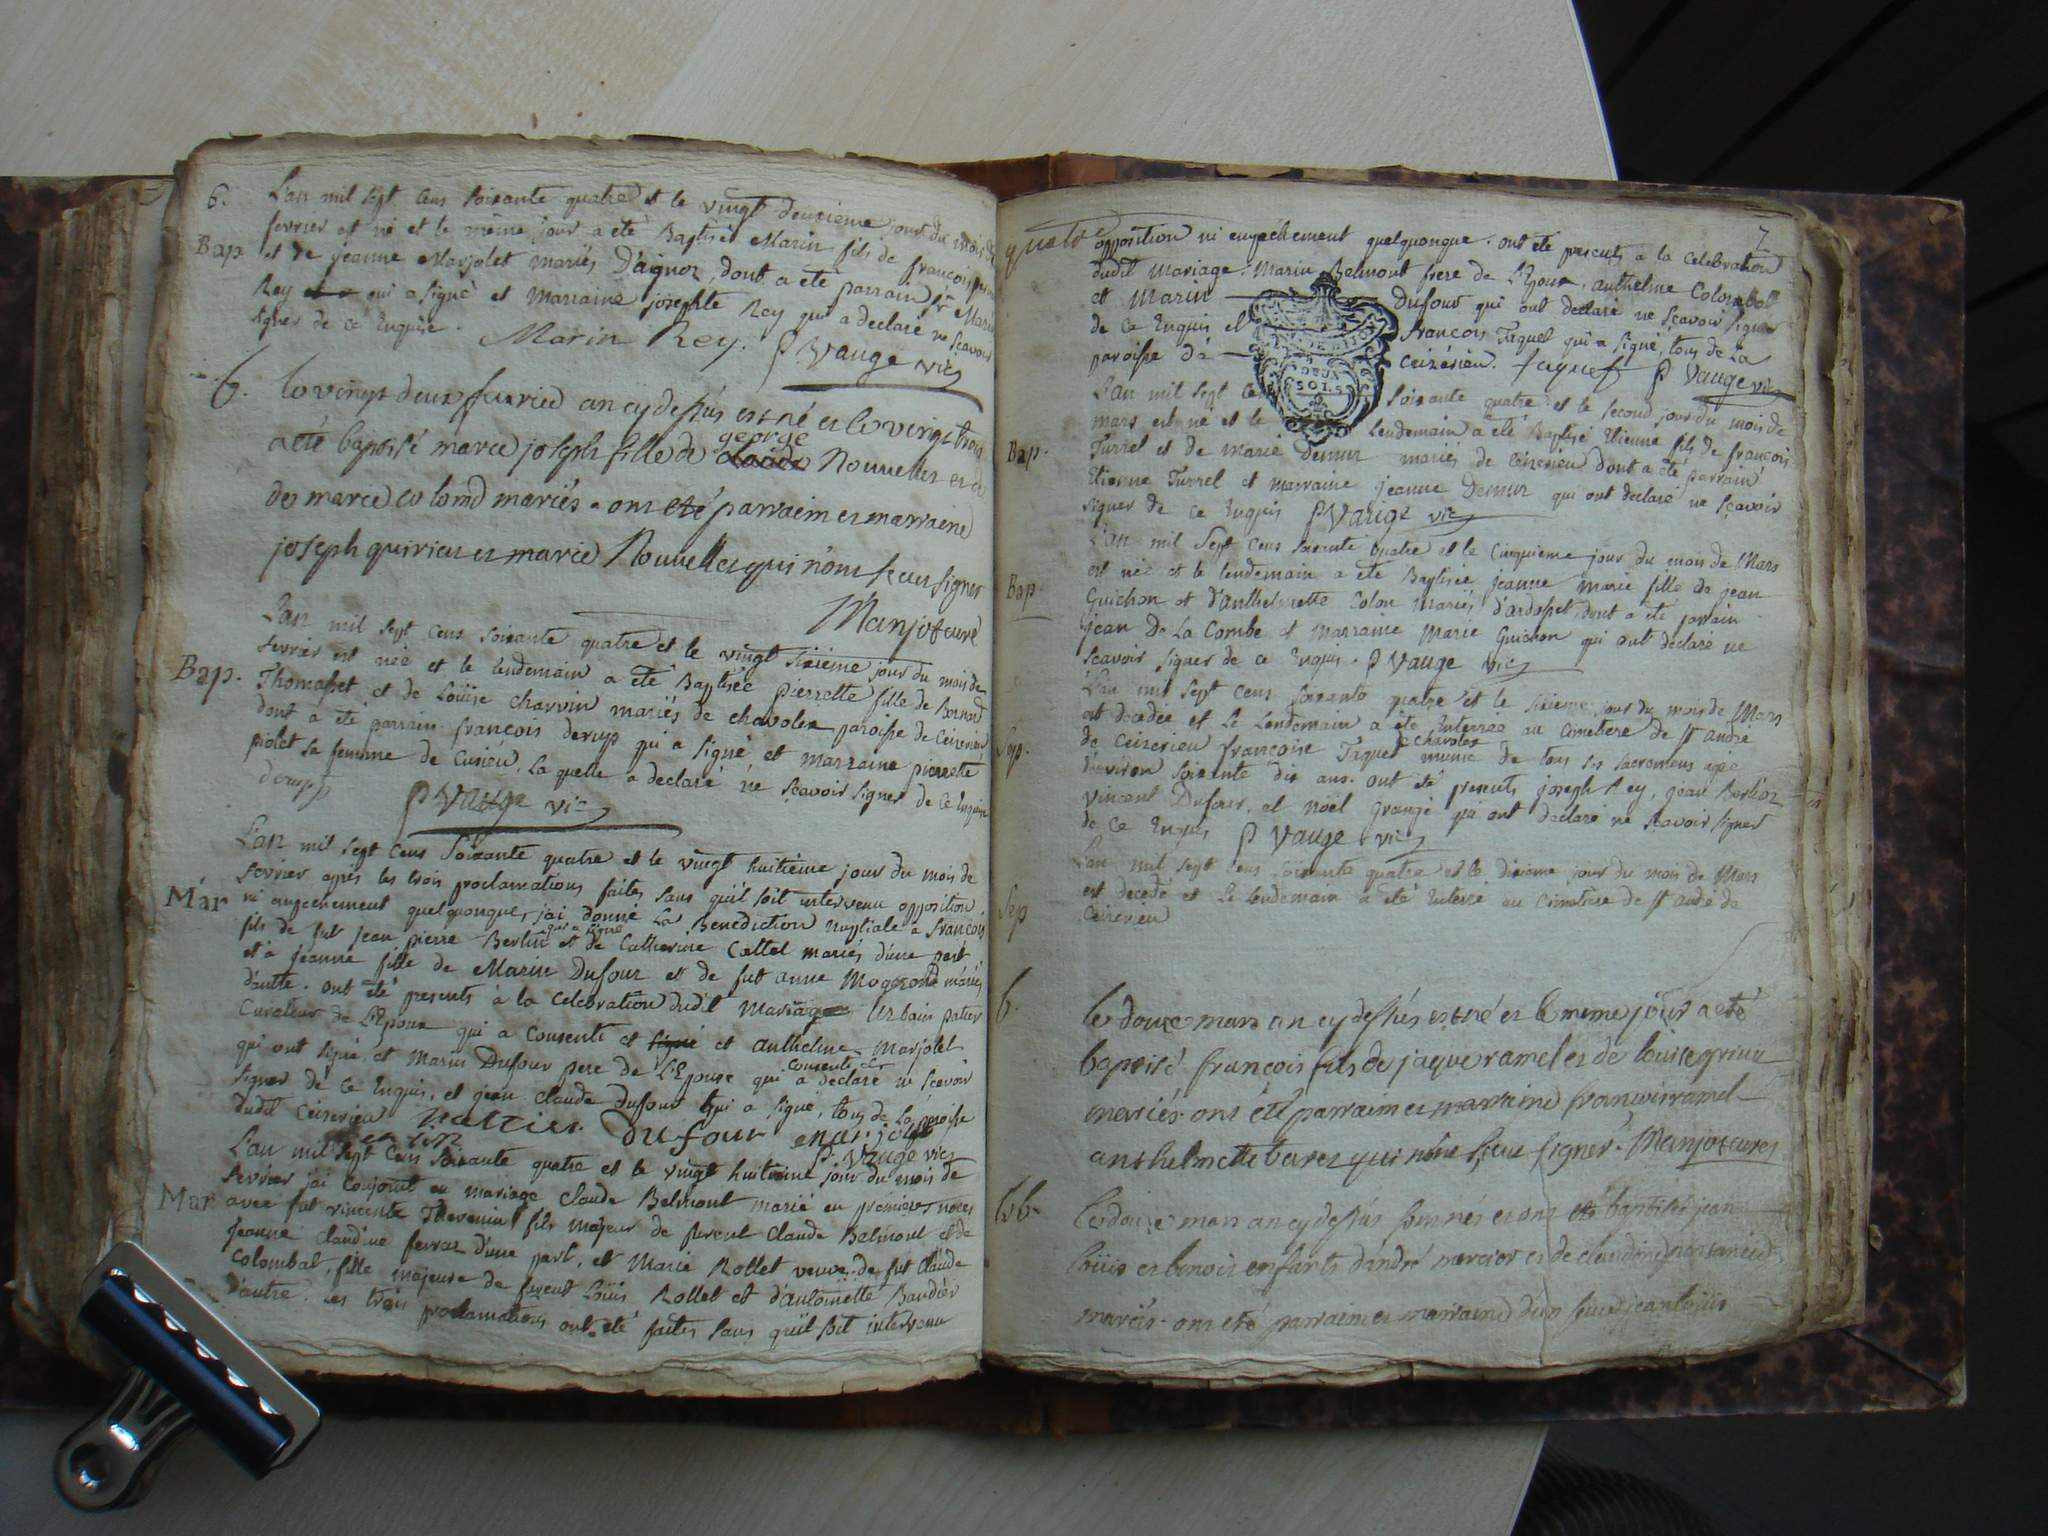 6.
L'an mil sept cens soixante quatre et le vingt deuxieme jour du mois de
Bap
fevrier est né et le même jour a été Baptisé Marin fils de françois
et de jeanne Marjolet mariés D'aignoz, dont a été parrain Sr Marin
Rey qui a signé et Marraine josephte Rey qui a declaré ne scavoir
signer de ce Enquise.
Marin Rey. P Vauge vic
b.
le vingt deux fevrier an cy dessus est né et le vingt trois
a été baptisé marie joseph fille de george Nouvellet et
de marie colomb mariés. ont eté parraim et marraine
joseph quirieu et marie Nouvellet qui n'ont sceu signer
Manjot curé
L'an mil sept cens soixante quatre et le vingt sixieme jour du mois de
Bap.
fevrier est née et le lendemain a été Baptisée pierrette fille de Bernard
Thomasset et de Loüise charvin mariés de chavolex paroisse de Ceizerieu
dont a été parrain françois derup qui a signé et marraine pierrette
piolet sa femme de Curieu. La quelle a declaré ne scavoir signer de ce Enquise
derup P Vauge vic
L'an mil sept cens Soixante quatre et le vingt huitieme jour du mois de
Mar
fevrier apres les trois proclamations faites sans qu'il soit intervenu opposition
ni empechement quelquonques, jai donné La Benediction Nuptiale a François
qui a signé
fils de fut jean pierre Berlin et de Catherine Cattel mariés d'une part
et à jeanne fille de Marin Dufour et de fut anne Mogerod mariés
d'autre. ont été presents à la celebration dudit Mariage Urbain patier
Curateur de L'Epoux qui a Consenti et signé et anthelme Marjolet
qui ont signé, et Marin Dufour pere de L'Epouse qui a consenti et declaré ne scavoir
signer de ce Enquis, et jean claude Dufour qui a signé, tous de La paroisse
dudit Ceizerieu
dufour marjolet
P Vauge vic
L'an mil sept cens soixante quatre et le vingt huitieme jour du mois de
Mar
fevrier jai Conjoint en mariage Claude Belmont marié en premieres noces
avec fut vincente Thevenin fils majeur de furent Claude Belmont et de
jeanne claudine ferraz d'une part, et Marie Rollet veuve de fut Claude
Colombat, fille majeure de furent Loüis Rollet et d'antoinette Baudier
d'autre. Les trois proclamations ont été faites sans qu'il soit intervenu
7
quatre
opposition ni empechement quelquonque. ont été presents a la celebration
dudit Mariage: Marin Belmont frere de L'Epoux, anthelme Colombat
et Marin Dufour qui ont declaré ne scavoir signer
de ce Enquis et francois Taquet qui a signé, tous de La
paroisse de Ceizérieu. Taquet P Vauge vic
DEUX
SOLS
L'an mil sept cens soixante quatre et le second jour du mois de
mars est né et le lendemain a été Baptisé Etienne fils de francois
Bap.
Turrel et de marie Demur mariés de ceizerieu dont a été parrain
Etienne Turrel et marraine jeanne Demur qui ont declaré ne scavoir
signer de ce Enquis P Vauge vic
L'an mil sept cens soixante quatre et le Cinquieme jour du mois de Mars
Bap.
est née et le lendemain a été Baptisée jeanne marie fille de jean
Guichon et d'anthelmette Colon Mariés d'ardosset dont a été parrain
jean De La Combe et Marraine Marie Guichon qui ont declaré ne
scavoir signer de ce Enquis. P Vauge vic
L'an mil sept cens soixante quatre et le sixieme jour du mois de Mars
est decedée et Le Lendemain a été Enterrée au Cimetiere de st andré
Sep.
de Ceizerieu françoise Taquet de chavolex munie de tous ses sacremens agée
d'environ soixante dix ans. ont été presents joseph Rey, jean Berlioz
vincent Dufour, et noël Grange qui ont declaré ne scavoir signer
de ce Enquis P Vauge vic
L'an mil sept cens soixante quatre et le dixieme jour du mois de Mars
est decedé et Le Lendemain a été Enterré au Cimetiere de st andré de
Sep
Ceizerieu
b.
le douze mars an cy dessus est né et le meme jour a eté
baptisé françois fils de jaque ramel et de louise
mariés. ont eté parraim et marraine francois ramel
anthelmette baret qui n'ont sceu signer. Manjot curé
b. b.
Le douze mars an cy dessus sont nés et ont eté baptisés jean
loüis et benoit enfants d'andré mercier et de claudine
mariés. ont eté parraim et marraine d'un jean loüis